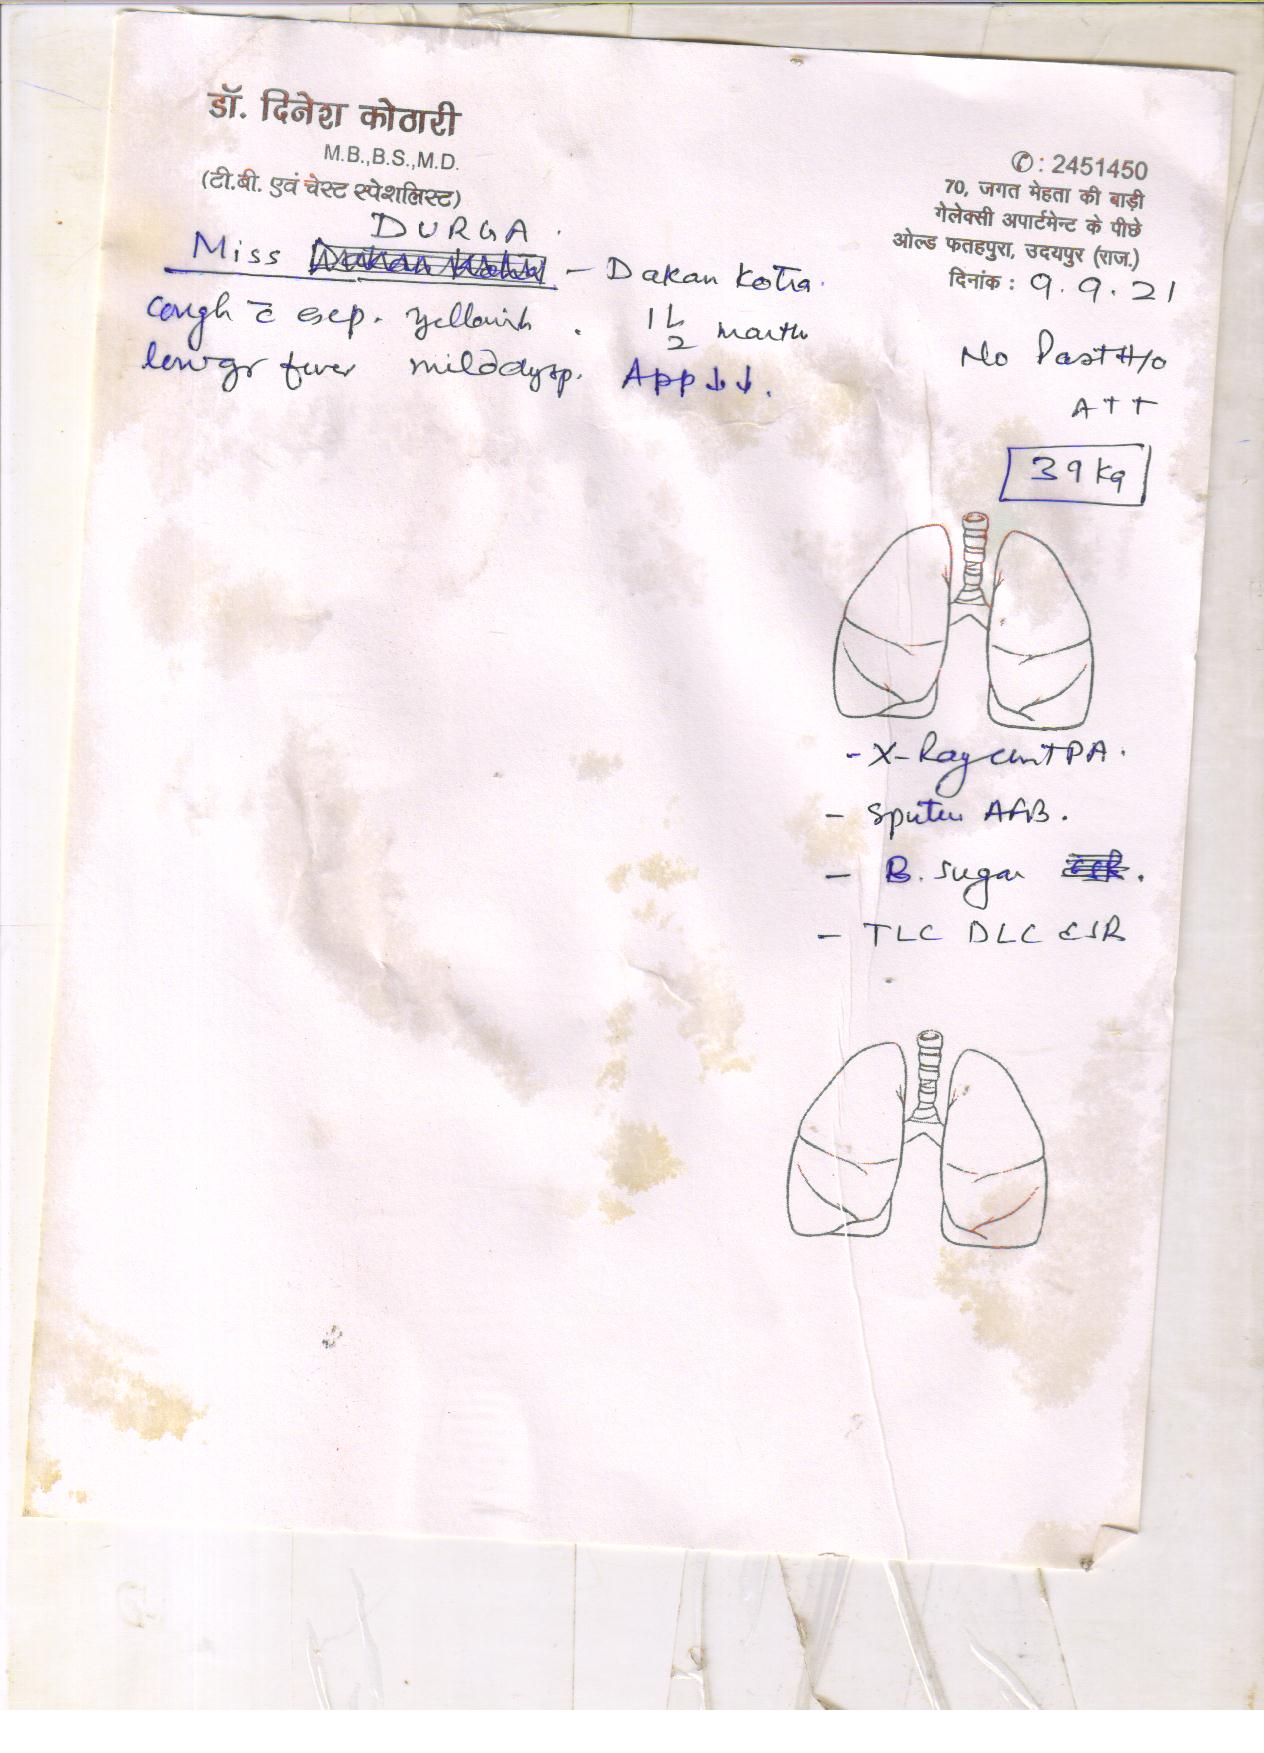 डॉ. दिनेश कोठारी
M.B.,B.S.,M.D.
(टी.बी. एवं चेस्ट स्पेशलिस्ट)
✆: 2451450
70, जगत मेहता की बाड़ी
गेलेक्सी अपार्टमेन्ट के पीछे
ओल्ड फतहपुरा, उदयपुर (राज.)
दिनांक : 9.9.21
DURGA
Miss - Dakan Kotra.
cough c̄ exp. yellowish. 1 1/2 month
low gr fever mild dysp. App↓↓.
No Past H/o
ATT
39 kg
- X-Ray chest PA.
- Sputum AFB.
- B. sugar
- TLC DLC ESR